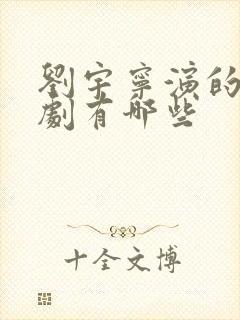 劉宇寧演的
劇有哪些
十全文博